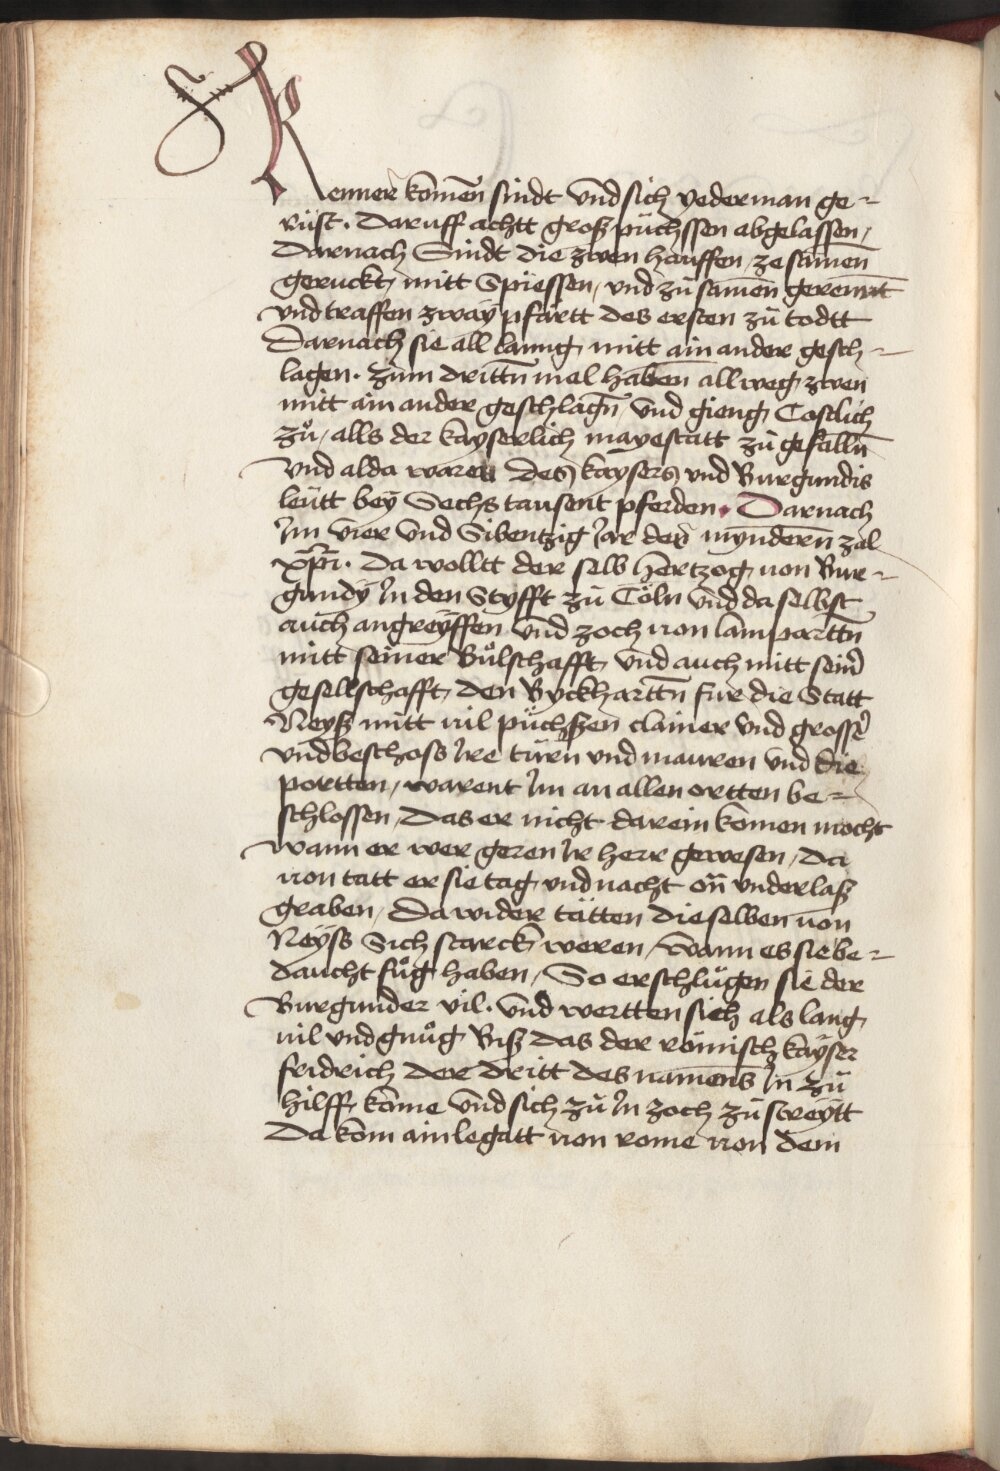 Renner komen̄ sindt vnd sich yederman ge-
rüst. Daruff achtt groß püchssen abgelassen,
Darnach Sindt die zwen hauffen, ze samen̄
geruckt, mitt Spiessen, vnd zů samen̄ gerenntt
vnd traffen zway pfärtt des ersten zů todtt
Darnach sie all lanng, mitt ain ander gesch-
lagen. Zům dritt̄n mal haben̄ all weg, zwen
mitt ain ander geschlaḡn vnd gieng, Costlich
zů, alls der kayserlich mayestatt zů gefall̄n
vnd alda waren des kaysers, vnd Burgundis
leütt bey Sechs tausent pferden. Darnach
Im vier vnd Sibentzig Iar der mynder̄n zal
xp̄i. Da wolltt der selb hertzog, von Bur-
gundÿ In den Styfft zů Cöln vnd da selbst
auch angreÿffen vnd zoch von lampartt̄n
mitt seiner Bůlschafft, vnd auch mitt sein̄
gesellschafft, den Byckhartt̄n für die Statt
Neyß mitt vil püchßen clainer vnd grosser
vnd beschoss Ire türn vnd mauren vnd die
portten, warent Im an allen ortten be-
schlossen, Das er nicht darein komen mocht
wann er wer geren Ir herr gewesen, Da
von tatt er sie tag, vnd nacht on̄ vnderlaß
graben, Da wider tätten die selben von
Neÿss Sich starck weren, wann es sie be-
daucht fůg haben, So erschlůgen sie der
Burgunder vil. vnd wertten sich als lang,
vil vnd gnůg, Biß das der römisch kaÿser
fridrich der dritt des namens In zů
hilff, kome vnd sich zů In zoch zů streÿtt
Da kom ain legatt von rome von dem